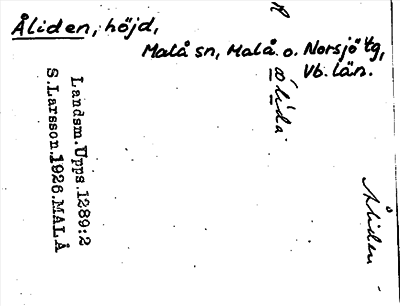 Åliden, höjd,
Malå sn, Malå o. Norsjö tg,
Vb. län.
Landsm.Upps.1289:2
S.Larsson.1926.MALÅ
Åliden